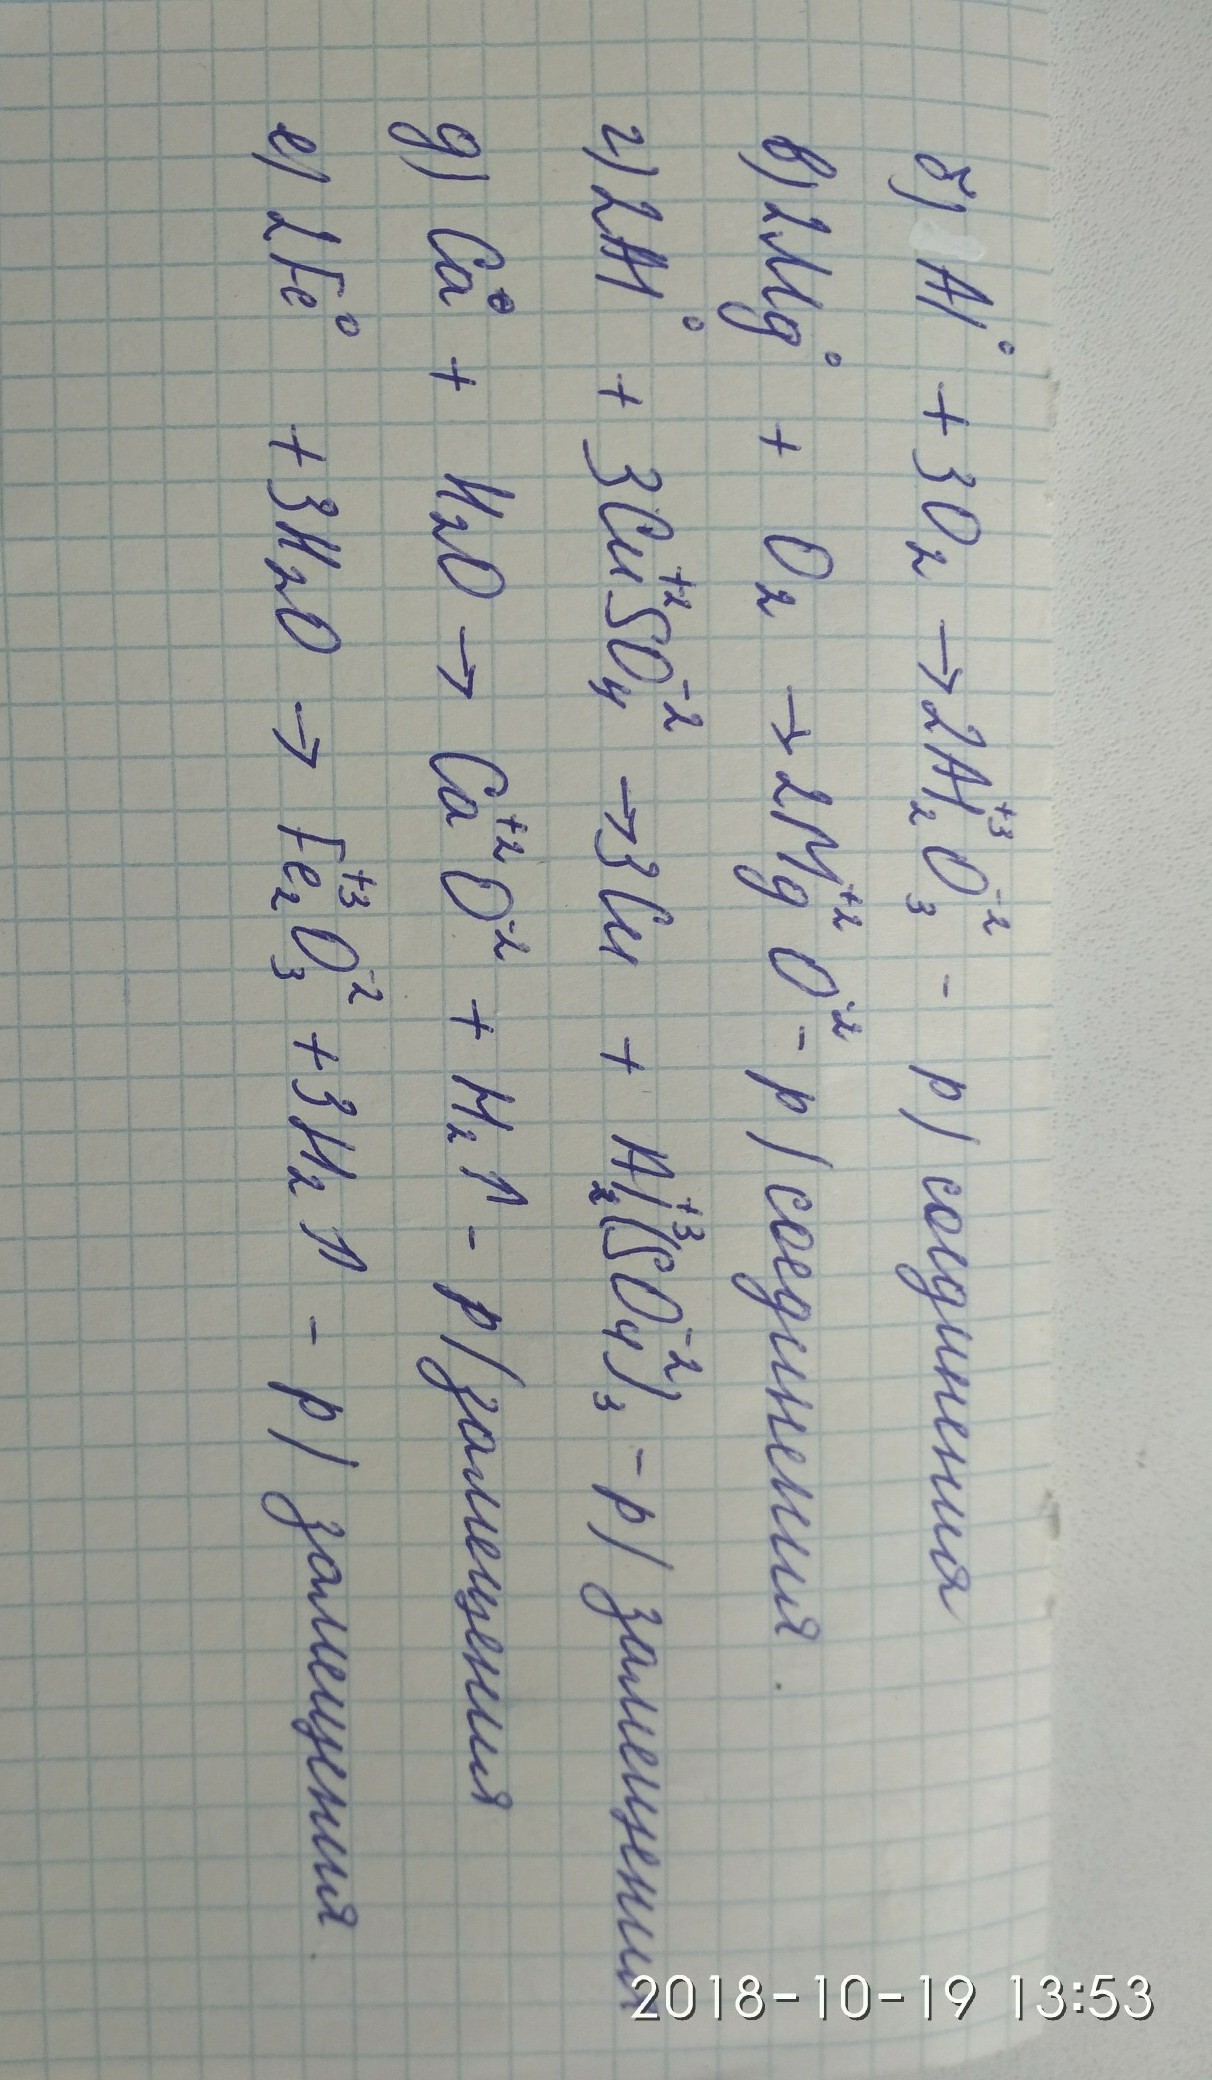 б) Al⁰ + 3O₂ → 2Al₂⁺³O₃⁻² - р/ соединения
в) 2Mg⁰ + O₂ → 2Mg⁺²O⁻² - р/ соединения.
г) 2Al⁰ + 3Cu⁺²SO₄⁻² → 3Cu + Al₂⁺³(SO₄⁻²)₃ - р/ замещения
д) Ca⁰ + H₂O → Ca⁺²O⁻² + H₂↑ - р/ замещения
е) 2Fe⁰ + 3H₂O → Fe₂⁺³O₃⁻² + 3H₂↑ - р/ замещения.
2018-10-19 13:53